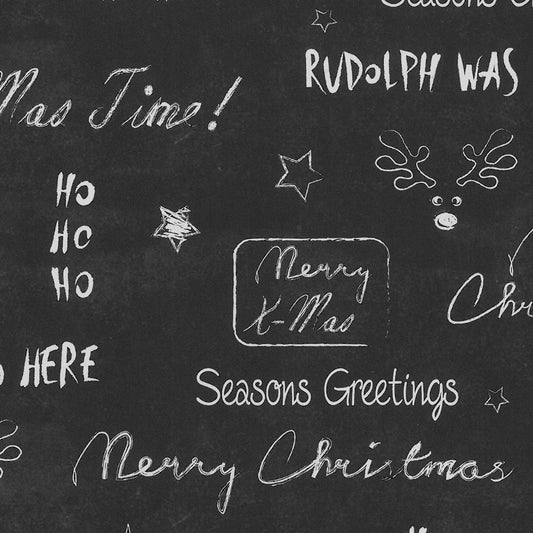 Seasons Gr
RUDOLPH WAS
Mas Time!
HO
HO
HO
Merry
X-Mas
Chr
HERE
Seasons Greetings
Merry Christmas